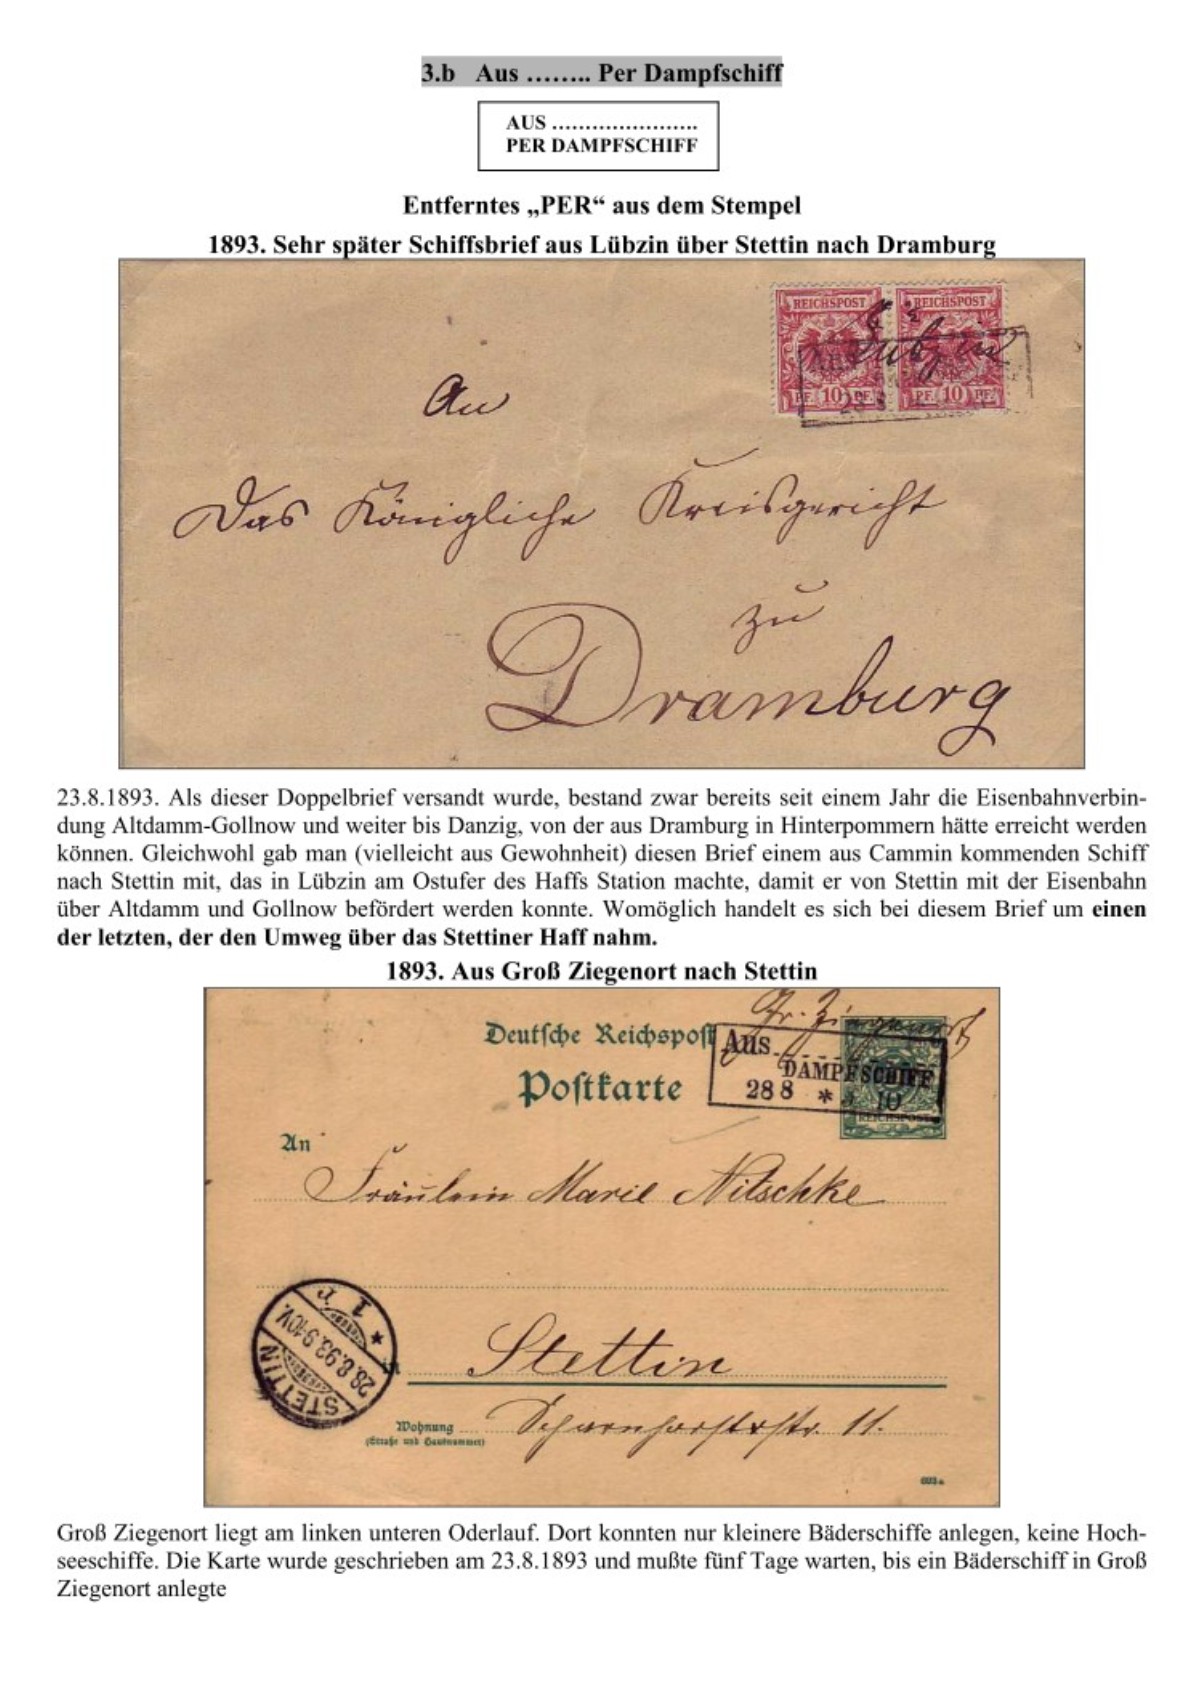 3.b Aus …….. Per Dampfschiff
AUS ………………….
PER DAMPFSCHIFF
Entferntes „PER“ aus dem Stempel
1893. Sehr später Schiffsbrief aus Lübzin über Stettin nach Dramburg
REICHSPOST REICHSPOST
Lübzin
PF. 10 PF. PF. 10 PF.
An
Das Königliche Kreisgericht
zu
Dramburg
23.8.1893. Als dieser Doppelbrief versandt wurde, bestand zwar bereits seit einem Jahr die Eisenbahnverbin-
dung Altdamm-Gollnow und weiter bis Danzig, von der aus Dramburg in Hinterpommern hätte erreicht werden
können. Gleichwohl gab man (vielleicht aus Gewohnheit) diesen Brief einem aus Cammin kommenden Schiff
nach Stettin mit, das in Lübzin am Ostufer des Haffs Station machte, damit er von Stettin mit der Eisenbahn
über Altdamm und Gollnow befördert werden konnte. Womöglich handelt es sich bei diesem Brief um einen
der letzten, der den Umweg über das Stettiner Haff nahm.
1893. Aus Groß Ziegenort nach Stettin
Gr. Ziegenort
Deutsche Reichspost
Aus
DAMPFSCHIFF
Postkarte
28 8 * 10
REICHSPOST
An
Fräulein Marie Nitschke
STETTIN
28.8.93.9-10V.
* 1
Stettin
Wohnung
(Straße und Hausnummer)
Scharnhorststr. 11.
Groß Ziegenort liegt am linken unteren Oderlauf. Dort konnten nur kleinere Bäderschiffe anlegen, keine Hoch-
seeschiffe. Die Karte wurde geschrieben am 23.8.1893 und mußte fünf Tage warten, bis ein Bäderschiff in Groß
Ziegenort anlegte